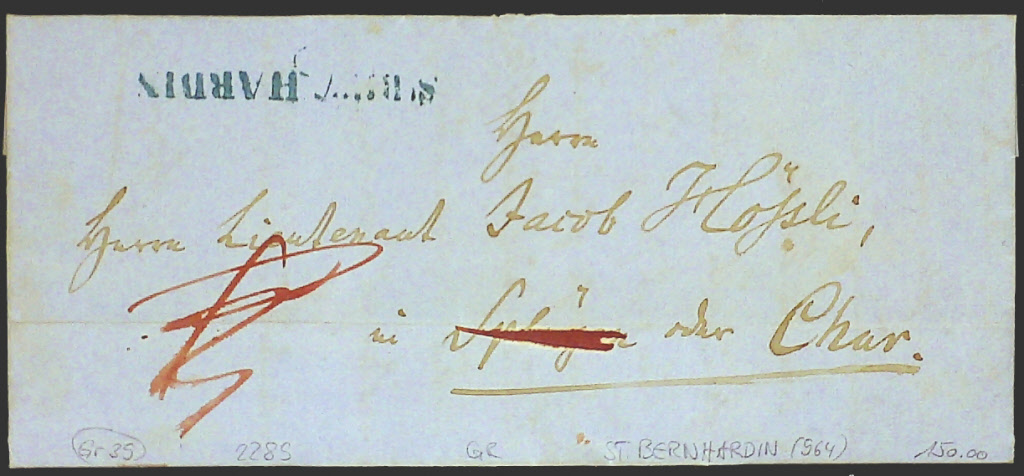 Herrn
Herrn Lieutenant Jacob Hößli,
in Splügen oder Chur.
Gr 39 2285 GR ST. BERNHARDIN (964) 150.00